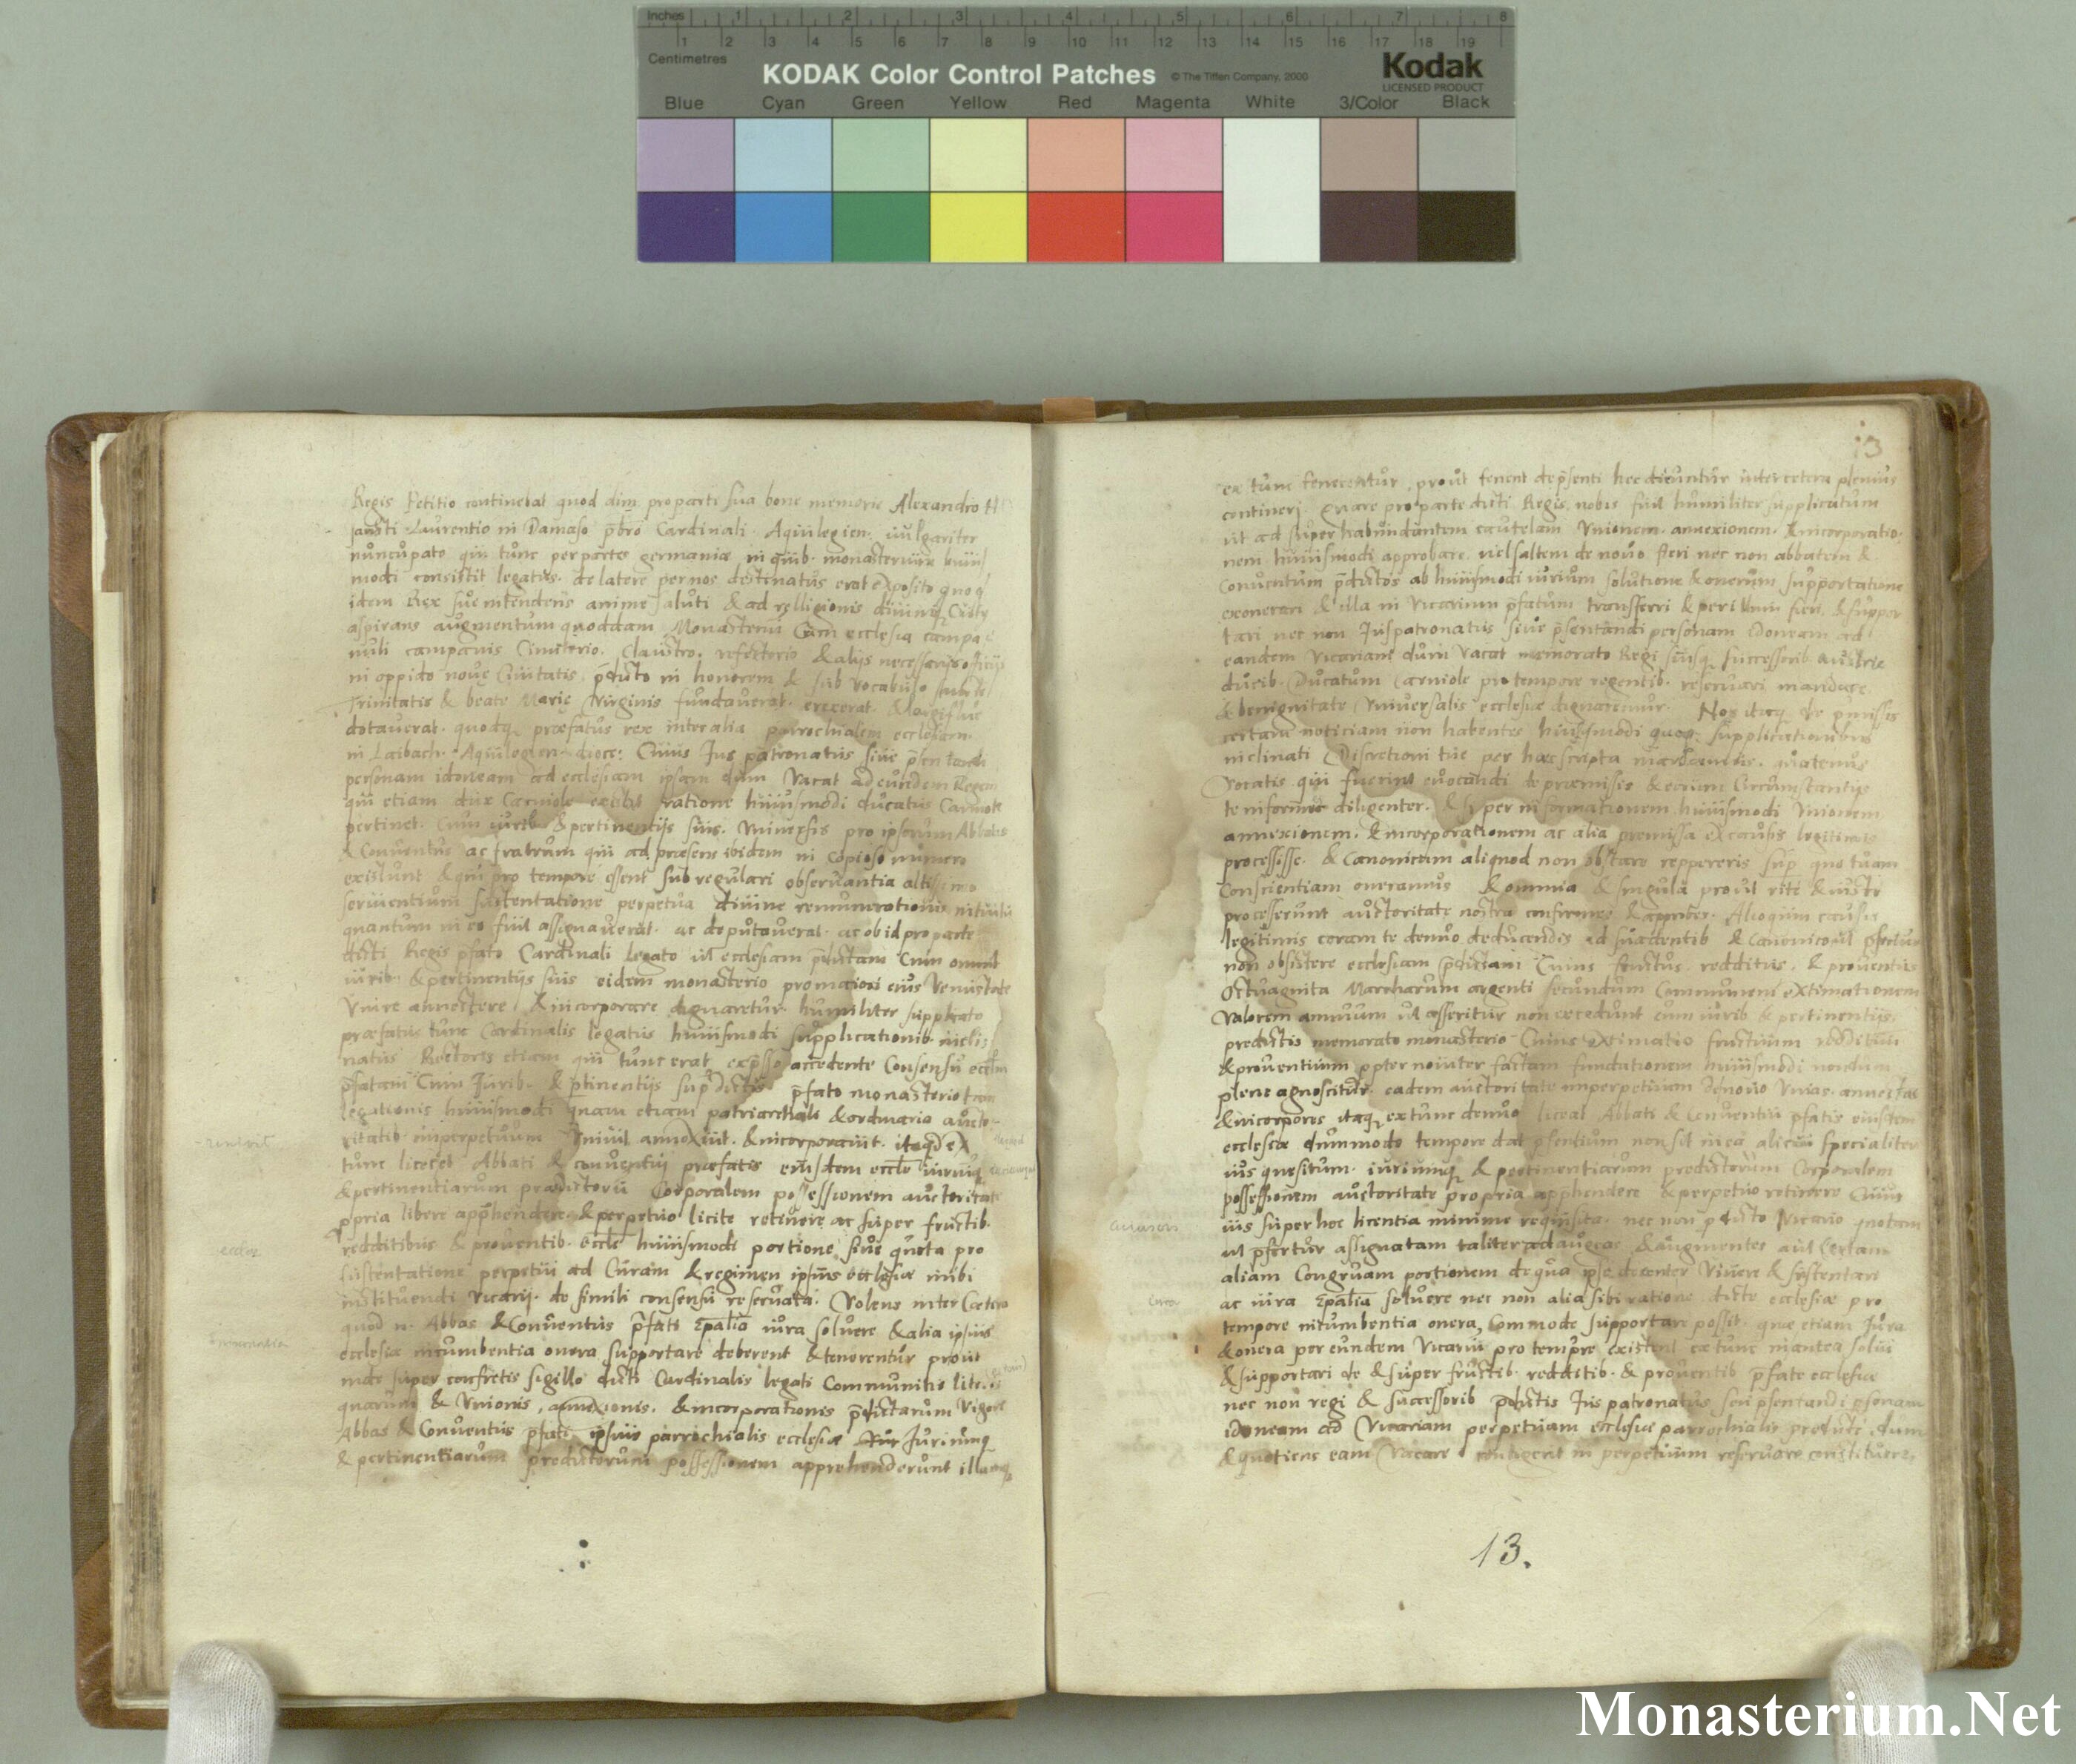 Inches 1 2 3 4 5 6 7 8
Centimetres 1 2 3 4 5 6 7 8 9 10 11 12 13 14 15 16 17 18 19
KODAK Color Control Patches © The Tiffen Company, 2000 Kodak
LICENSED PRODUCT
Blue Cyan Green Yellow Red Magenta White 3/Color Black
Regis Petitio continebat quod dim pro parte sua bone memorie Alexandro
Laurentio in Damaso p̄bro Cardinali Aquilegien. vulgariter
nuncupato qui tunc per partes germaniæ in quib. monasterium huius
modi consistit legatus de latere per nos destinatus erat exposito quod
idem Rex sue intendens anime saluti & ad religionis divini
aspirans augmentum quoddam Monasterium Cum ecclesia campa
nili campanis Cimiterio. Claustro. refectorio & alijs necessarijs
in oppido nouę Ciuitatis p̄dicto in honorem & sub vocabulo
Trinitatis & beate Marię Virginis fundaverat. erexerat. &
dotaverat. quodq præfatus rex inter alia parrochialem ecclesiam.
in Laibach. Aquilegien. dioce: Cuius Jus patronatus siue p̄sentandi
personam idoneam ad ecclesiam ipsam dum Vacat ad eundem Regem
qui etiam dux Carniole existit ratione huiusmodi ducatus Carniole
pertinet. Cum iurib & pertinentijs suis. Vniuersis pro ipsorum Abbatis
& Conuentus ac fratrum qui ad præsens ibidem in copioso numero
existunt & qui pro tempore essent sub regulari observantia altissimo
seruientium sustentatione perpetua divine remunerationis intuitu
quantum in eo fuit assignaverat. ac deputaverat. ac ob id pro parte
dicti Regis p̄fato Cardinali Legato ut ecclesiam p̄dictam Cum omnib
iurib. & pertinentijs suis eidem monasterio pro maiori eius Venustate
Vnire annectere & incorporare dignaretur. humiliter supplicato
præfatus tunc Cardinalis legatus huiusmodi supplicationib. incli
natus Rectoris etiam qui tunc erat exp̄sso accedente Consensu eccl̄m
p̄fatam Cum Jurib. & p̄tinentijs sup̄dictis p̄fato monasterio
legationis huiusmodi quam etiam patriarchali & ordinaria aucto-
ritatib. inperpetuum Vniuit annexiuit. & incorporauit. itaqd ex
tunc liceret Abbati & conuentui præfatis eiusdem eccl̄e iuriumq
& pertinentiarum prædictorū Corporalem possessionem auctoritate
p̄pria libere app̄hendere & perpetuo licite retinere ac super fructib.
redditibus & prouentib. eccl̄e huiusmodi portione siue quota pro
sustentatione perpetui ad Curam & regimen ipsius ecclesiæ inibi
instituendi vicarij. de simili consensu reseruata. Volens inter Cætera
quod Abbas & Conuentus p̄fati ep̄alia iura soluere & alia ipsius
ecclesiæ incumbentia onera supportare deberent & tenerentur prout
inde super confectis sigillo dicti Cardinalis legati Communitis literis
quarum & Vnionis, annexionis. & incorporationis p̄dictarum Vigore
Abbas & Conuentus p̄fati ipsius parrochialis ecclesiæ Juriumq
& pertinentiarum predictorum possessionem apprehenderunt
13
ex tunc tenerentur, prout tenent de p̄senti hec dicuntur inter cetera plenius
contineri. Quare pro parte dicti Regis nobis fuit humiliter supplicatum
ut ad super habundantem cautelam Vnionem. annexionem. & incorporatio
nem huiusmodi approbare. vel saltem de nouo fieri nec non abbatem &
Conuentum p̄dictos ab huiusmodi iurium solutione & onerum supportatione
exonerari & illa in vicarium p̄fatum transferri & per illum fieri. & suppor
tari nec non Juspatronatus siue p̄sentandi personam Idoneam ad
eandem Vicariam dum Vacat memorato Regi suisq successorib. austrie
ducib. Ducatum Carniole pro tempore regentib. reseruari mandare
& benignitate Vniuersalis ecclesiæ dignaremur. Nos itaq de p̄missis
certam noticiam non habentes huiusmodi quoq supplicationibus
inclinati Discretioni tue per hæc scripta mandamus. quatenus
Vocatis qui fuerint euocandi de præmissis & eorum Circumstantijs
te informes diligenter. & si per informationem huiusmodi Vnionem
annexionem. & incorporationem ac alia premissa ex causis legitimis
processisse. & Canonicum aliquod non obstare reppereris sup̄ quo tuam
Conscientiam oneramus & omnia & singula prout rite & iuste
processerunt auctoritate nostra confirmes & approbes. Alioquim causis
legitimis coram te denuo deducendis id suadentib & Canonico ut p̄fertur
non obsistere ecclesiam p̄dictam Cuius fructus. redditus. & prouentus
Octuaginta Marcharum argenti secundum Communem extimationem
Valorem annuum ut asseritur non excedunt cum iurib & pertinentijs
predictis memorato monasterio Cuius extimatio fructuum reddituum
& prouentuum p̄pter nouiter factam fundationem huiusmodi nondum
plene agnoscitur. eadem auctoritate imperpetuum denouo Vnias. annectas
& incorpores itaq extunc denuo liceat Abbati & Conuentui p̄fatis eiusdem
ecclesiæ dummodo tempore dat p̄sentium non sit in ea alicui specialiter
ius quesitum. iuriumq & pertinentiarum predictorum Corporalem
possessionem auctoritate propria app̄hendere & perpetuo retinere Cuius
uis super hoc licentia minime requisita. nec non p̄dicto Vicario quotam
ut p̄fertur assignatam taliter adaugeas & augmentes aut Certam
aliam Congruam portionem de qua ipse decenter Viuere & sustentari
ac iura ep̄alia soluere nec non alia sibi ratione dicte ecclesiæ pro
tempore incumbentia onera Commode supportare possit. quæ etiam Jura
& onera per eundem Vicariū pro tempore existent extunc inantea solui
& supportari de & super fructib. redditib. & prouentib p̄fate ecclesiæ
nec non regi & successorib p̄dictis Jus patronatus seu p̄sentandi p̄sonam
idoneam ad Vicariam perpetuam ecclesiæ parrochialis predicte, dum
& quotiens eam Vacare contigerit in perpetuum reseruare constituere
13.
Monasterium.Net